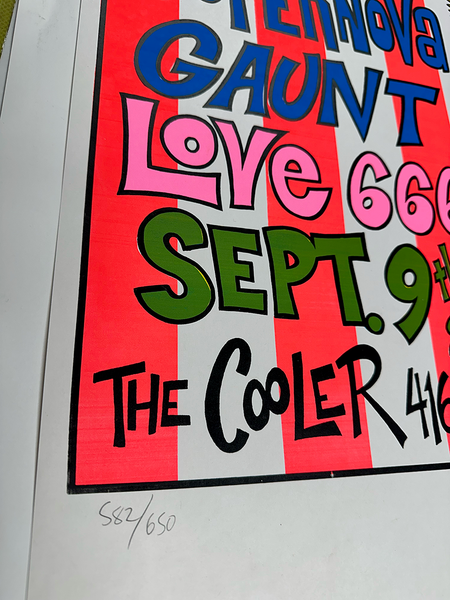 GAUNT
LOVE 666
SEPT. 9th
THE COOLER 416
582/650